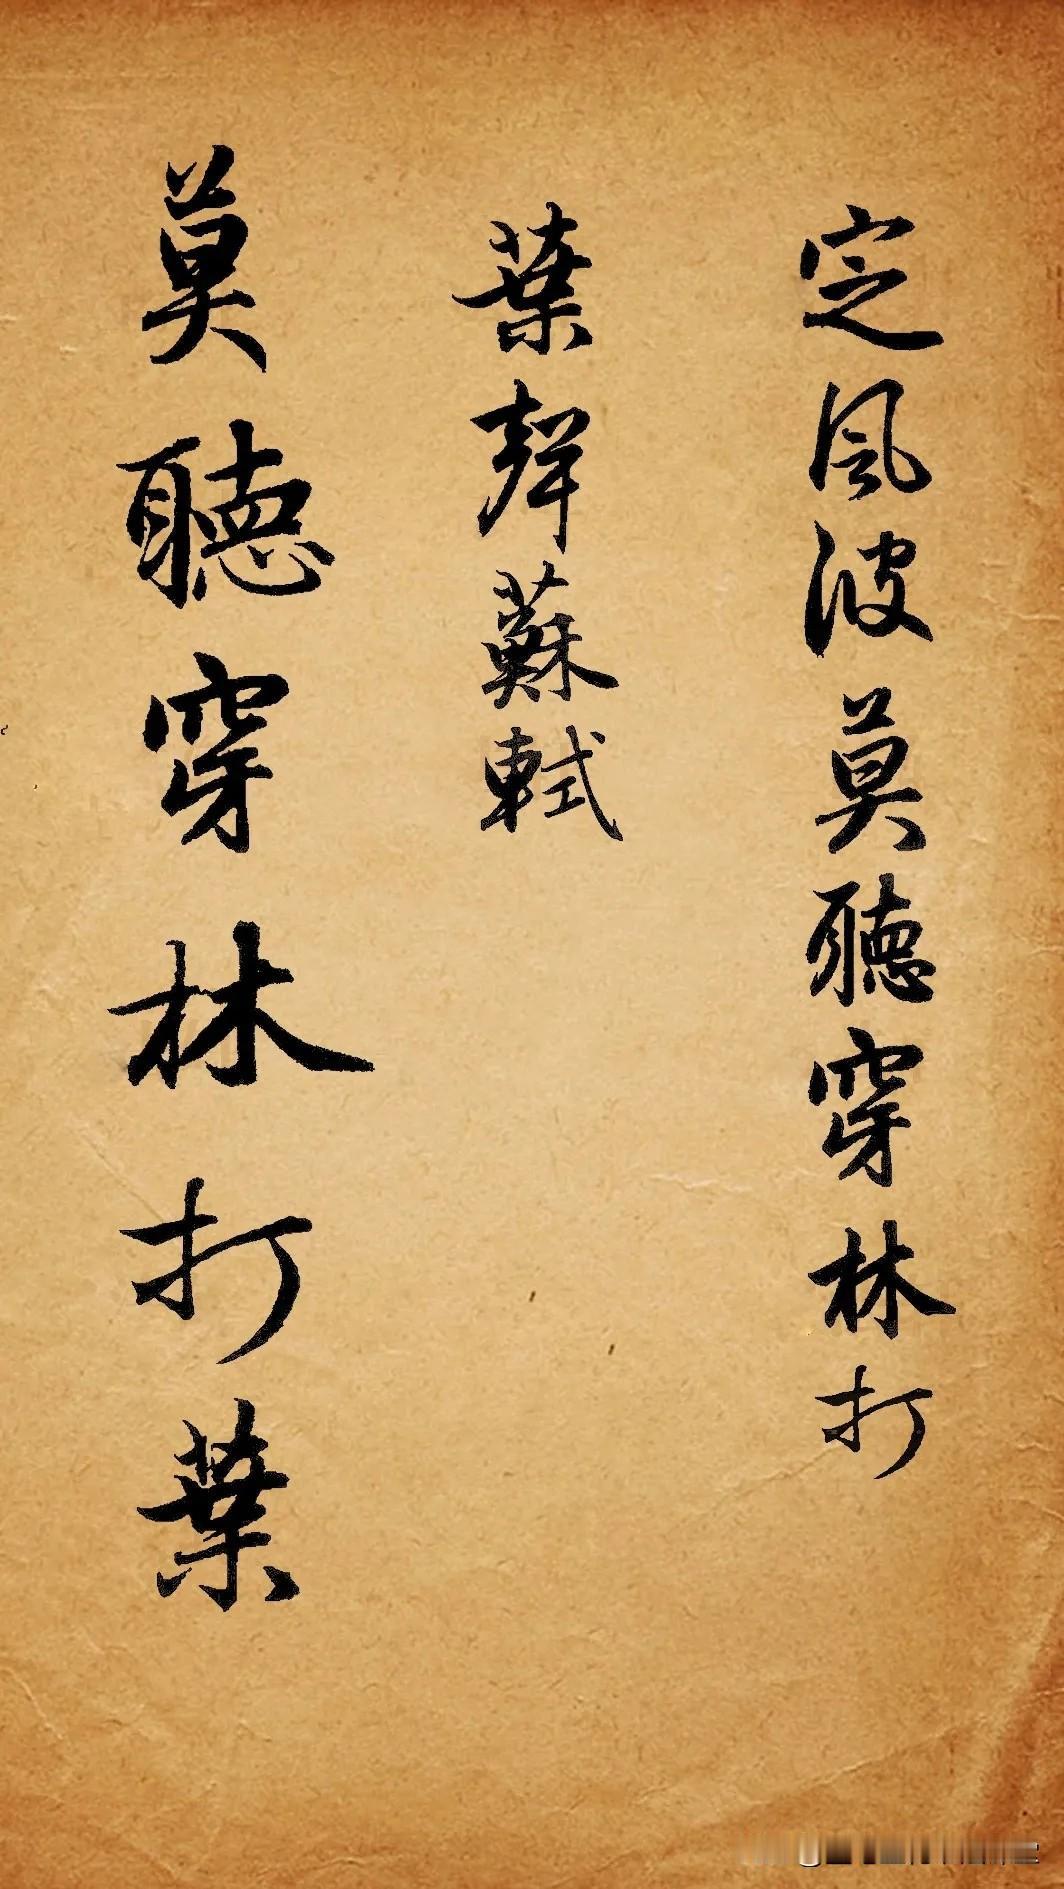 定風波莫聽穿林打
葉聲蘇軾
莫聽穿林打葉